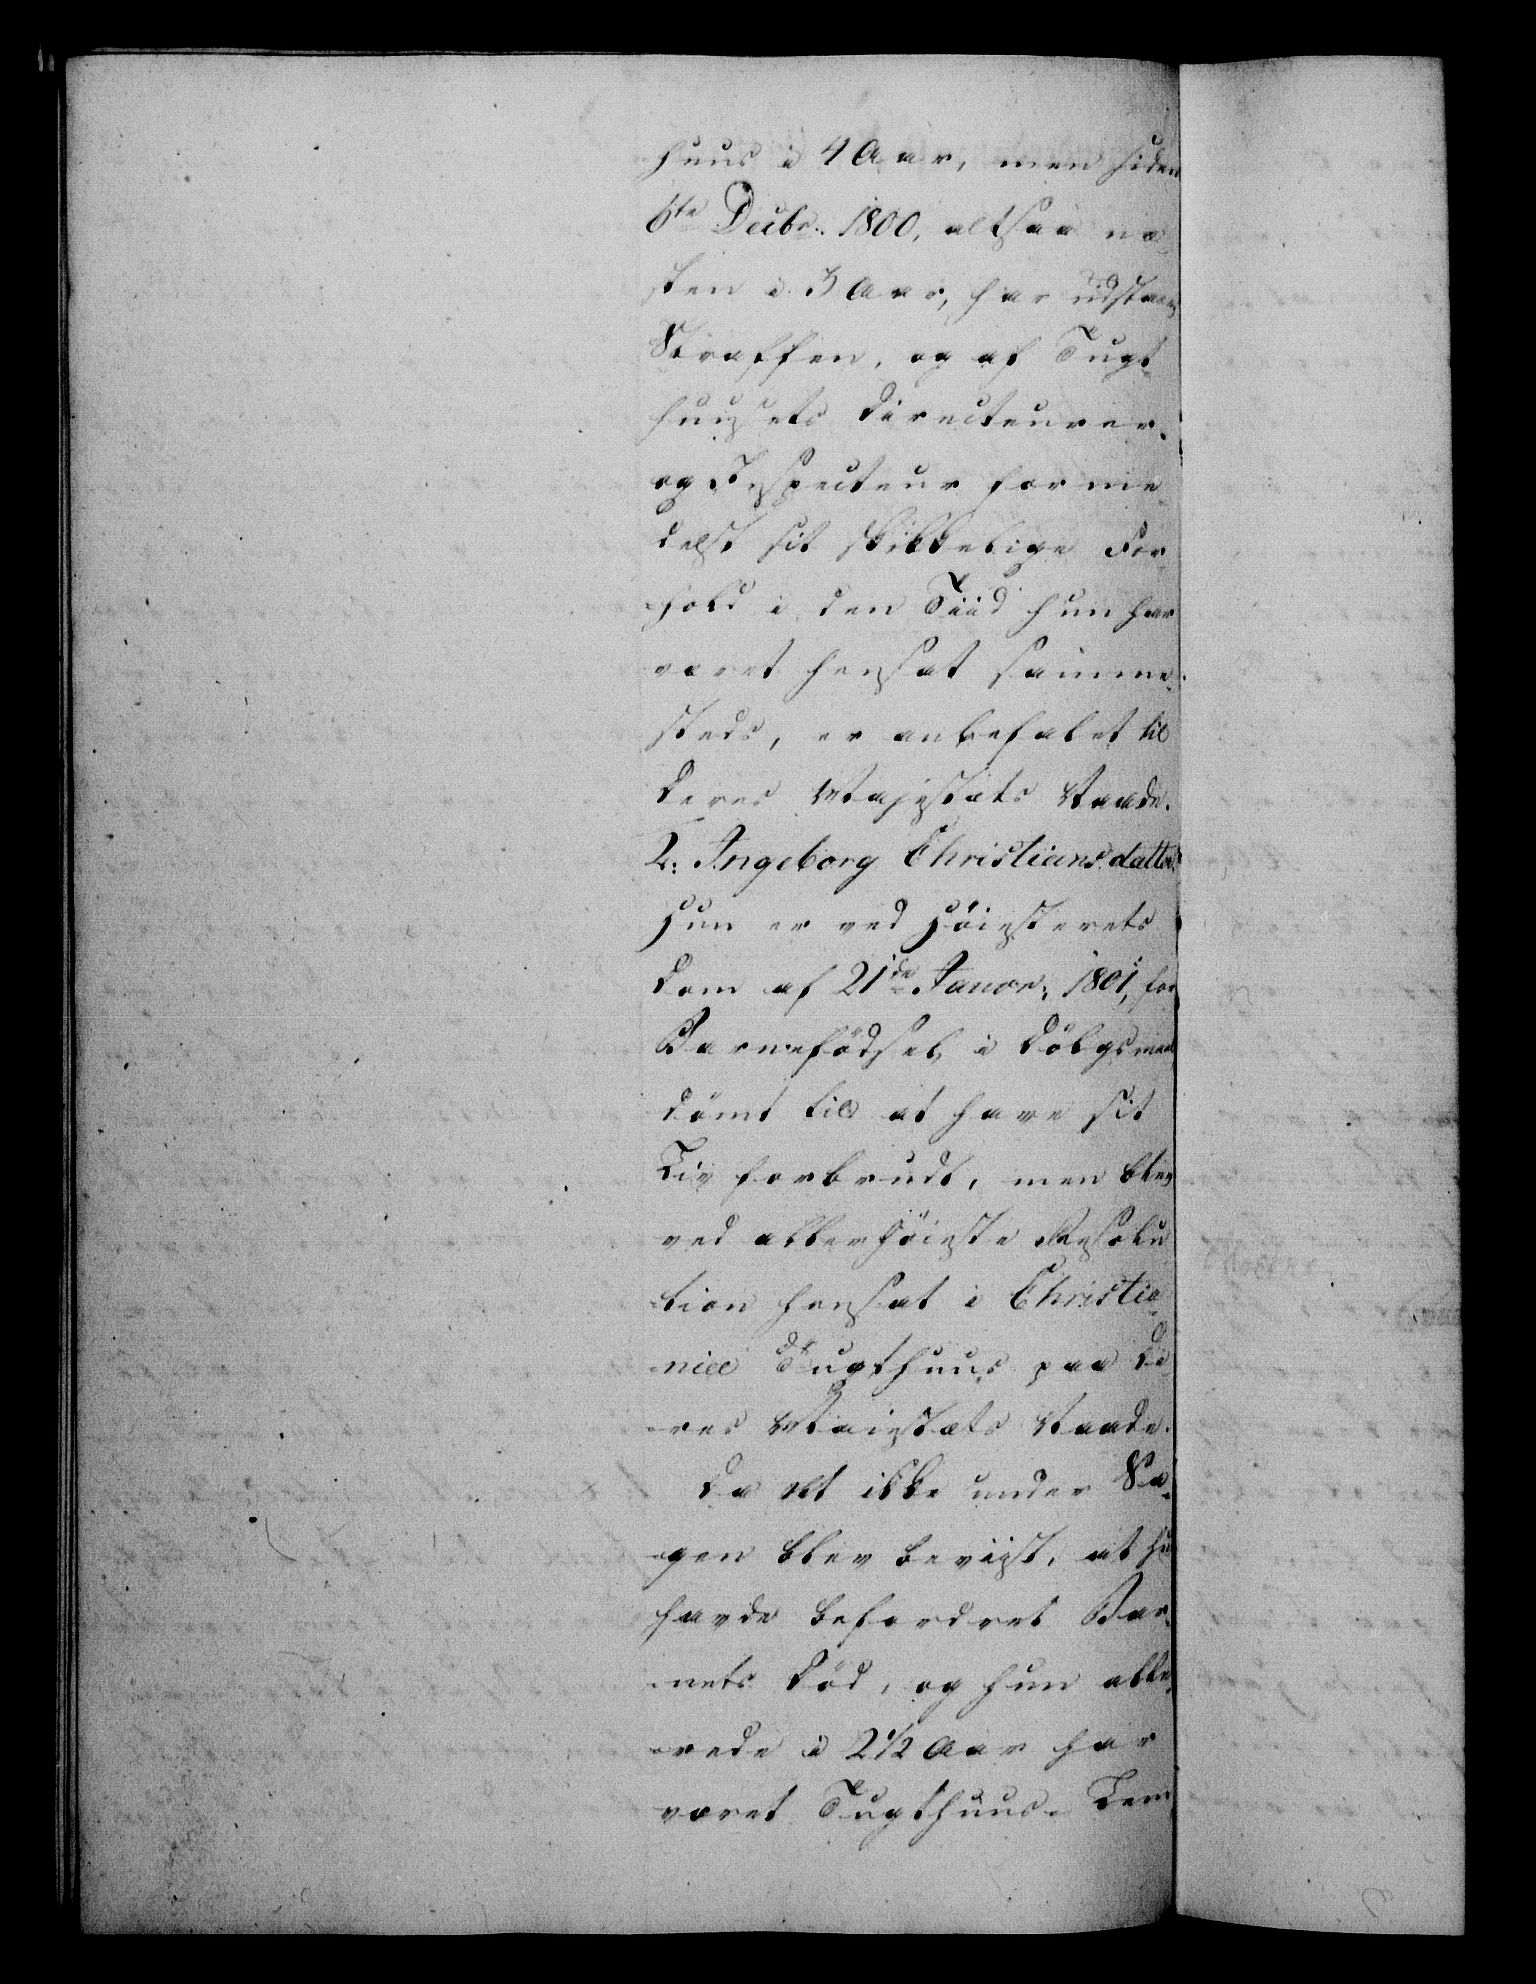 huus i 4 Aar, men siden
6te Decbr. 1800, altsaa næ¬
sten i 3 Aar, har udstaaet
Straffen, og af Tugt¬
huusets Directeurer
og Inspecteur forme¬
delst sit skikkelige For¬
hold i den Tiid hun har
været hensat samme¬
steds, er anbefalet til
Deres Majestæts Naade.
2: Ingeborg Christiansdatter.
Hun er ved Høiesterets
Dom af 21de Januar: 1801, for
Barnefødsel i Dølgsmaal
dømt til at have sit
Liv forbrudt, men blev
ved allerhøieste Resolu
tion hensat i Christia¬
niæ Tugthuus paa De
res Majestæts Naade.
Da det ikke under Sa¬
gen blev beviist, at hun
havde befordret Bar¬
nets Død, og hun alle¬
rede i 2 1/2 Aar har
været Tugthuus-Lem